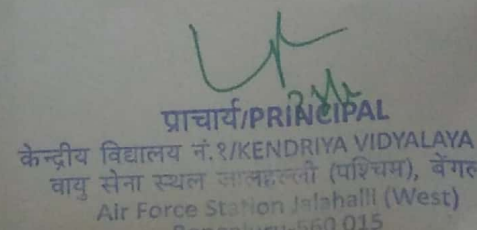 प्राचार्य/PRINCIPAL
केन्द्रीय विद्यालय नं.१/KENDRIYA VIDYALAYA
वायु सेना स्थल जालहल्ली (पश्चिम), बेंगल
Air Force Station Jalahalli (West)
Bengaluru-560 015